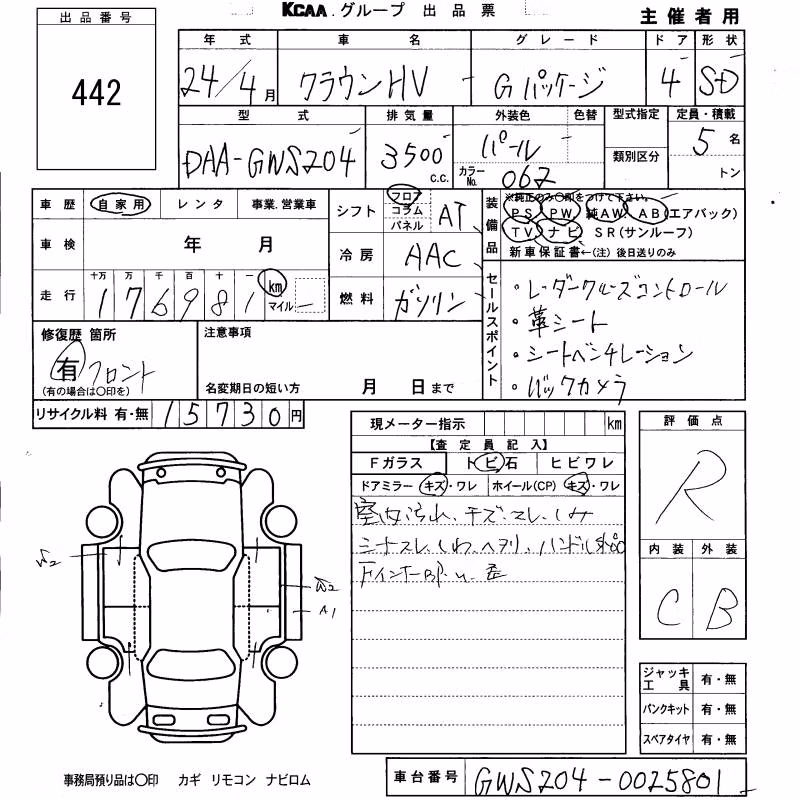 KCAA.グループ 出品票
主催者用
出品番号
442
年式 車名 グレード ドア 形状
24/4月 クラウンHV Gパッケージ 4 SD
型式 排気量 外装色 色替 型式指定 定員・積載
DAA-GWS204 3500 c.c. パール 5名
カラーNo. 062 類別区分 トン
車歴 自家用 レンタ 事業.営業車
車検 年 月
走行 十万 万 千 百 十 一
176981 km マイル
シフト フロア コラム パネル AT
冷房 AAC
燃料 ガソリン
装備品
※純正のみ〇印をつけて下さい。
PS PW 純AW AB(エアバック)
TV ナビ SR(サンルーフ)
新車保証書←(注) 後日送りのみ
セールスポイント
・レーダークルーズコントロール
・革シート
・シートベンチレーション
・バックカメラ
修復歴 箇所
有 フロント
(有の場合は〇印を)
注意事項
名変期日の短い方 月 日まで
リサイクル料 有・無 15730円
現メーター指示 km
【査定員記入】
Fガラス トビ石 ヒビワレ
ドアミラー キズ・ワレ ホイール(CP) キズ・ワレ
室内汚れ、キズ、スレ、シミ
シートスレ、しわ、ヘタリ、ハンドル
評価点
R
内装 外装
C B
W2
W2
A1
ジャッキ工具 有・無
パンクキット 有・無
スペアタイヤ 有・無
事務局預り品は〇印 カギ リモコン ナビロム
車台番号 GWS204-0025801